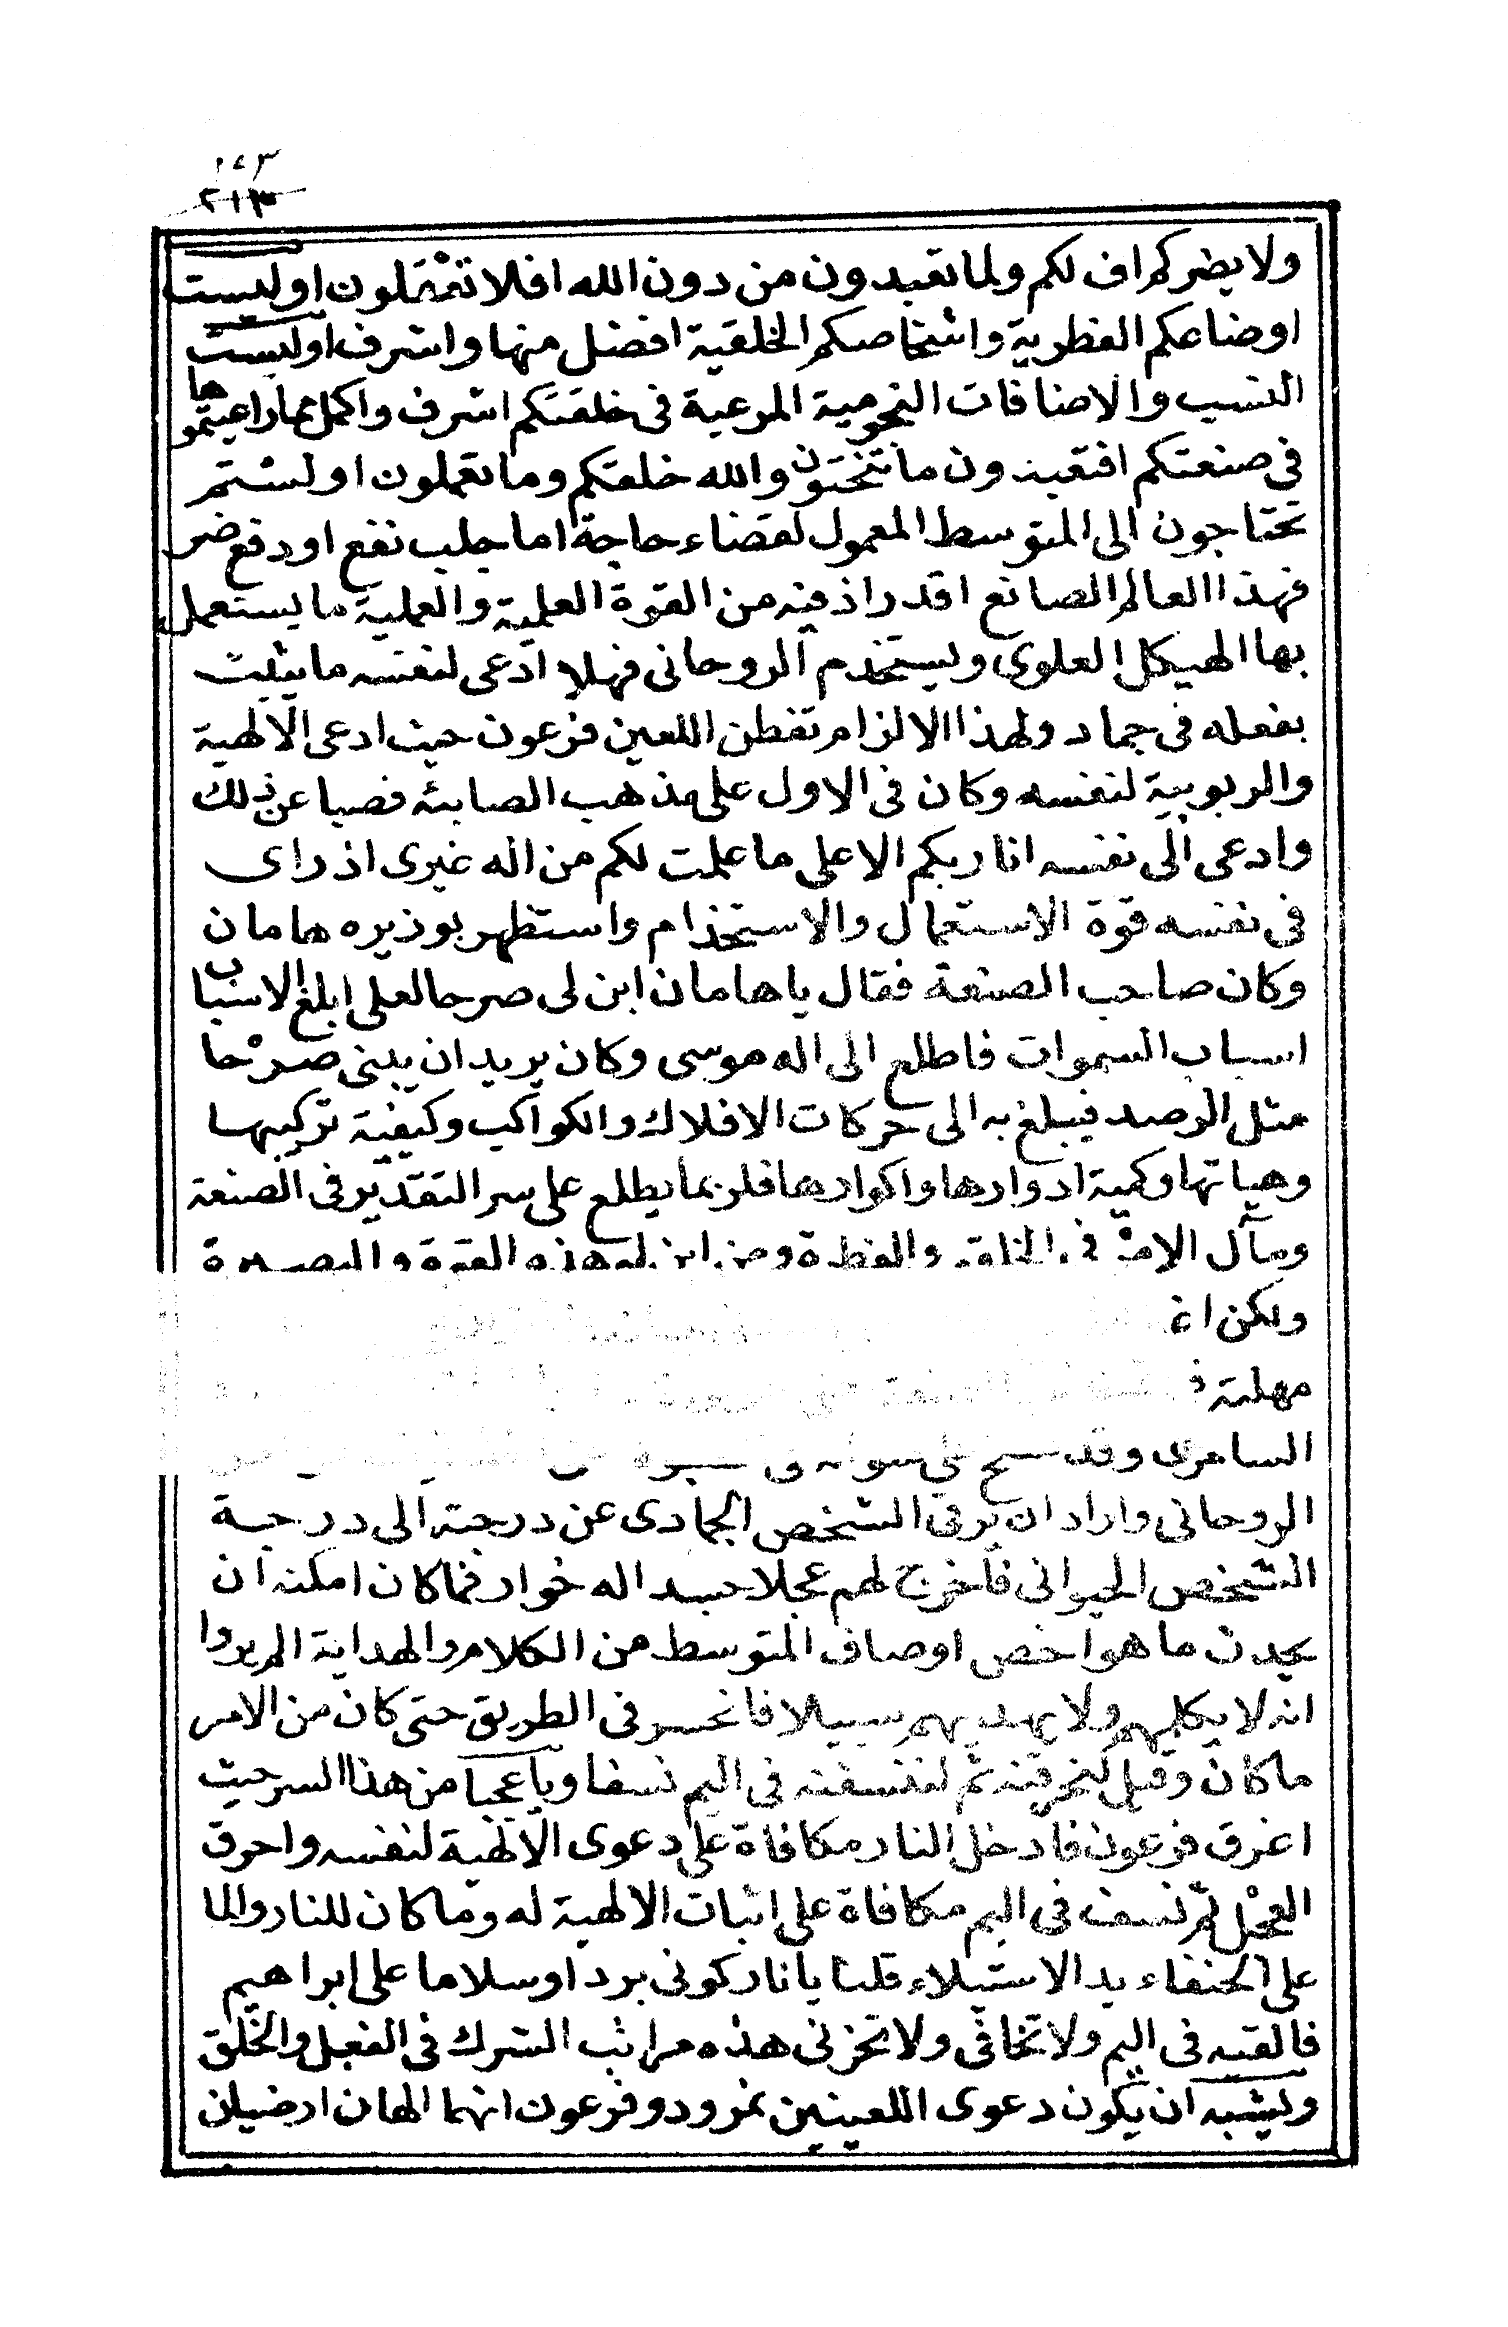 ١٤٣
٢١٣
ولا يضركم اف لكم ولما تعبدون من دون الله افلا تعقلون اوليست
اوضاعكم الفطرية واشخاصكم الخلقية افضل منها واشرف اوليست
النسب والاضافات النجومية المرعية فى خلقتكم اشرف واكمل مما راعيتموها
فى صنعتكم افتعبدون ما تنحتون والله خلقكم وما تعملون اولستم
تحتاجون الى المتوسط المعمول لقضاء حاجة اما جلب نفع او دفع ضر
فهذا العالم الصانع اقدر اذ فيه من القوة العلمية والعملية ما يستعمل
بها الهيكل العلوى ويستخدم الروحانى فهلا ادعى لنفسه ما يثبت
بفعله فى جماد ولهذا الالزام تفطن اللعين فرعون حيث ادعى الالهية
والربوبية لنفسه وكان فى الاول على مذهب الصابئه فصبا عن ذلك
وادعى الى نفسه انا ربكم الاعلى ما علمت لكم من اله غيرى اذ راى
فى نفسه قوة الاستعمال والاستخدام واستظهر بوزيره هامان
وكان صاحب الصنعة فقال يا هامان ابن لى صرحا لعلى ابلغ الاسباب
اسباب السموات فاطلع الى اله موسى وكان يريد ان يبنى صرحا
مثل الرصد فيبلغ به الى حركات الافلاك والكواكب وكيفية تركيبها
وهياتها وكمية ادوارها واكوارها فلربما يطلع على سر التقدير فى الصنعة
ومآل الامر فى الخلقة والفطرة ومن اين له هذه القوة والبصيرة
ولكن
مهلته
السامرى وقد
الروحانى واراد ان يرقى الشخص الجمادى عن درجته الى درجة
الشخص الحيوانى فاخرج لهم عجلا جسدا له خوار فما كان امكنه ان
يحدث ما هو اخص اوصاف المتوسط من الكلام والهداية الم يروا
انه لا يكلمهم ولا يهديهم سبيلا فانحسر فى الطريق حتى كان من الامر
ما كان وقيل لنحرقنه ثم لننسفنه فى اليم نسفا ويا عجبا من هذا السر حيث
اغرق فرعون فادخل النار مكافاة على دعوى الالهية لنفسه واحرق
العجل ثم نسف فى اليم مكافاة على اثبات الالهية له وما كان للنار والما
على الحنفاء يد الاستيلاء قلنا يا نار كونى بردا وسلاما على ابراهيم
فالقيه فى اليم ولا تخافى ولا تحزنى هذه مراتب الشرك فى الفعل والخلق
ويشبه ان يكون دعوى اللعينين نمرود وفرعون انهما الهان ارضيان